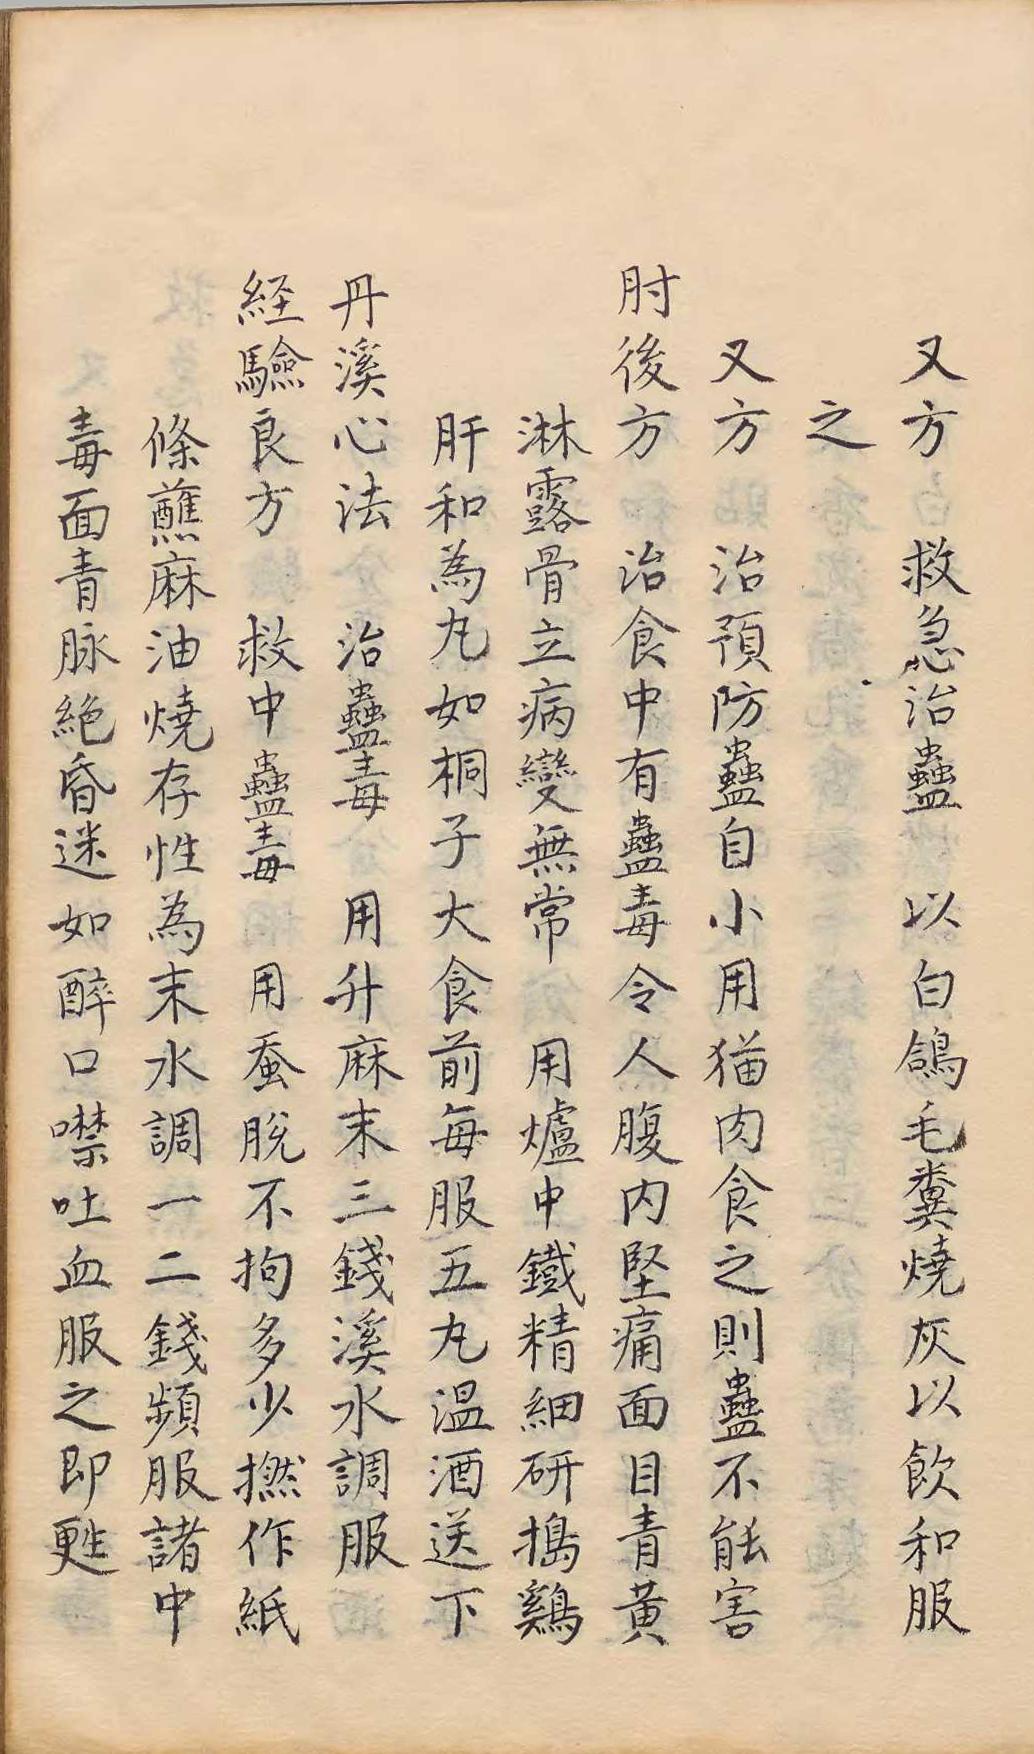 又方　救急治蠱　以白鴿毛糞燒灰以飲和服
之
又方　治預防蠱自小用猫肉食之則蠱不能害
肘後方　治食中有蠱毒令人腹内堅痛面目青黃
淋露骨立病變無常　用爐中鐵精細研搗鷄
肝和為丸如桐子大食前每服五丸温酒送下
丹溪心法　治蠱毒　用升麻末三錢溪水調服
経驗良方　救中蠱毒　用蚕脫不拘多少撚作紙
條蘸麻油燒存性為末水調一二錢頻服諸中
毒面青脉絕昏迷如醉口噤吐血服之即甦